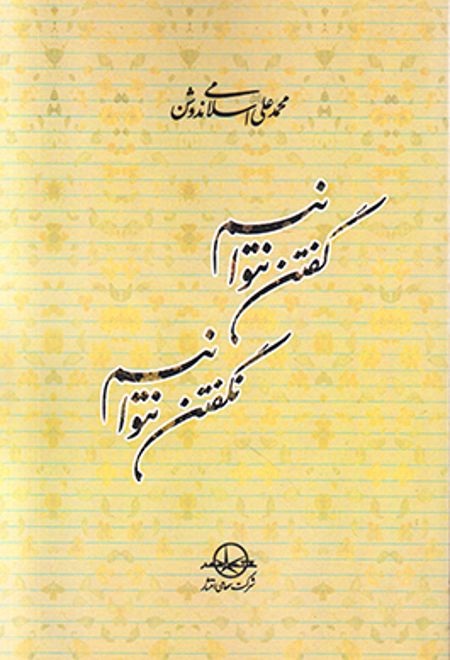 محمدعلی اسلامی ندوشن
گفتن نتوانیم
نگفتن نتوانیم
شرکت سهامی انتشار